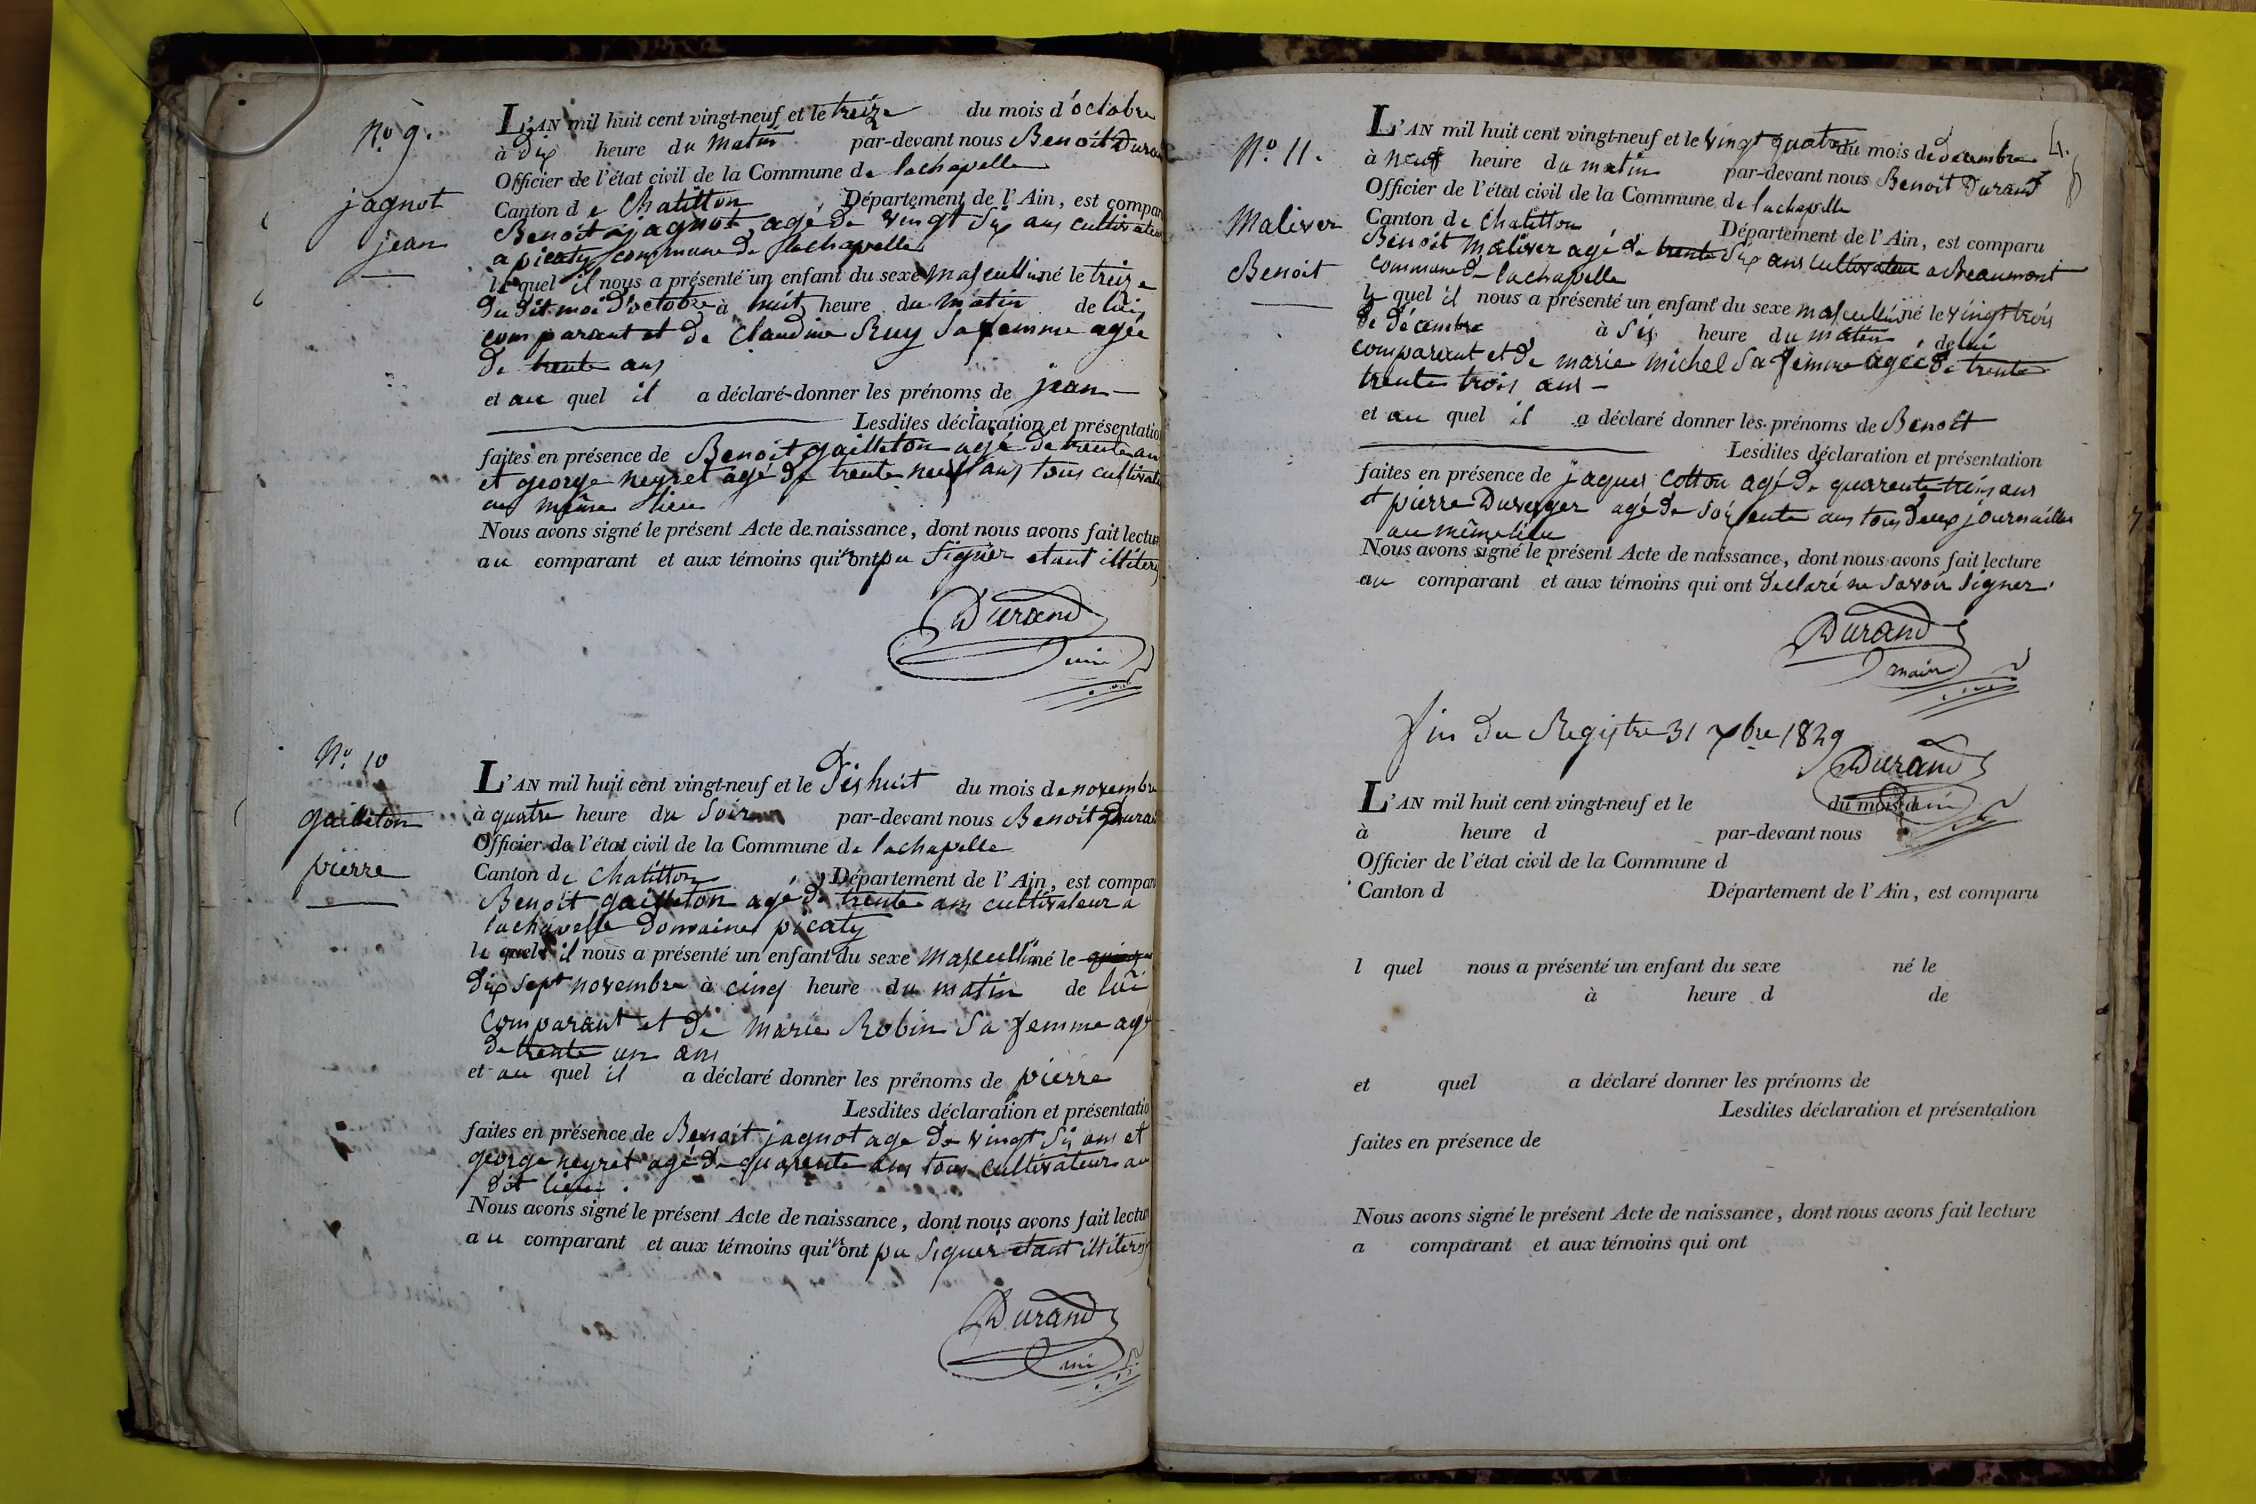 N.º 9.
jagnot
jean
L'AN mil huit cent vingt-neuf et le treize du mois d'octobre
à dix heure du matin par-devant nous Benoit Durand
Officier de l'état civil de la Commune de lachapelle
Canton de Chatillon Département de l'Ain, est compar
Benoit jagnot, agé de vingt six ans cultivateur
a picaty commune de lachapelle
le quel il nous a présenté un enfant du sexe mascullin né le treize
du dit moi d'octobre à huit heure du matin de lui
comparant et de Claudine Ruy sa femme agée
de trente ans
et au quel il a déclaré donner les prénoms de jean
Lesdites déclaration et présentatio
faites en présence de Benoit gailleton agé de trente an
et george neyret agé de trente neuf ans tous cultivate
au même lieu
Nous avons signé le présent Acte de naissance, dont nous avons fait lectur
au comparant et aux témoins qui n'ont pu signer etant illiterés
Durand
N.º 10
gailleton
pierre
L'AN mil huit cent vingt-neuf et le dishuit du mois de novembre
à quatre heure du soir par-devant nous Benoit Duran
Officier de l'état civil de la Commune de lachapelle
Canton de Chatillon Département de l'Ain, est compar
Benoit gailleton agé de trente ans cultivateur a
lachapelle domaine picaty
le quel il nous a présenté un enfant du sexe mascullin né le quinze
dix sept novembre à cinq heure du matin de lui
comparant et de marie Robin sa femme agé
de trente un ans
et au quel il a déclaré donner les prénoms de pierre
Lesdites déclaration et présentatio
faites en présence de Benoit jagnot age de vingt six ans et
george neyret agé de quarente ans tous cultivateurs au
dit lieu.
Nous avons signé le présent Acte de naissance, dont nous avons fait lectur
au comparant et aux témoins qui n'ont pu signer etant illiterés
Durand
4.
N.º 11.
Maliver
Benoit
L'AN mil huit cent vingt-neuf et le vingt quatre du mois de decembre
à neuf heure du matin par-devant nous Benoit Durand
Officier de l'état civil de la Commune de lachapelle
Canton de Chatillon Département de l'Ain, est comparu
Benoit maliver agé de trente six ans cultivateur a Beaumont
commune de lachapelle
le quel il nous a présenté un enfant du sexe mascullin né le vingt trois
de décembre à six heure du matin de lui
comparant et de marie michel sa femme agée de trente
trente trois ans
et au quel il a déclaré donner les prénoms de Benoit
Lesdites déclaration et présentation
faites en présence de jaques Cotton agé de quarente trois ans
et pierre Duverger agé de soixente ans tous deux journaillier
au même lieu
Nous avons signé le présent Acte de naissance, dont nous avons fait lecture
au comparant et aux témoins qui ont declaré ne savoir signer.
Durand
maire
fin du Registre 31 xbre 1829
Durand
L'AN mil huit cent vingt-neuf et le du mois d
à heure d par-devant nous
Officier de l'état civil de la Commune d
Canton d Département de l'Ain, est comparu
l quel nous a présenté un enfant du sexe né le
à heure d de
et quel a déclaré donner les prénoms de
Lesdites déclaration et présentation
faites en présence de
Nous avons signé le présent Acte de naissance, dont nous avons fait lecture
a comparant et aux témoins qui ont